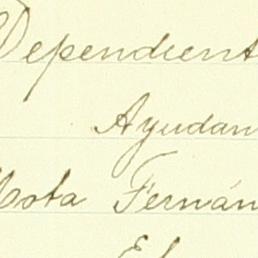 Dependient
Ayudan
Mota Fernán
El